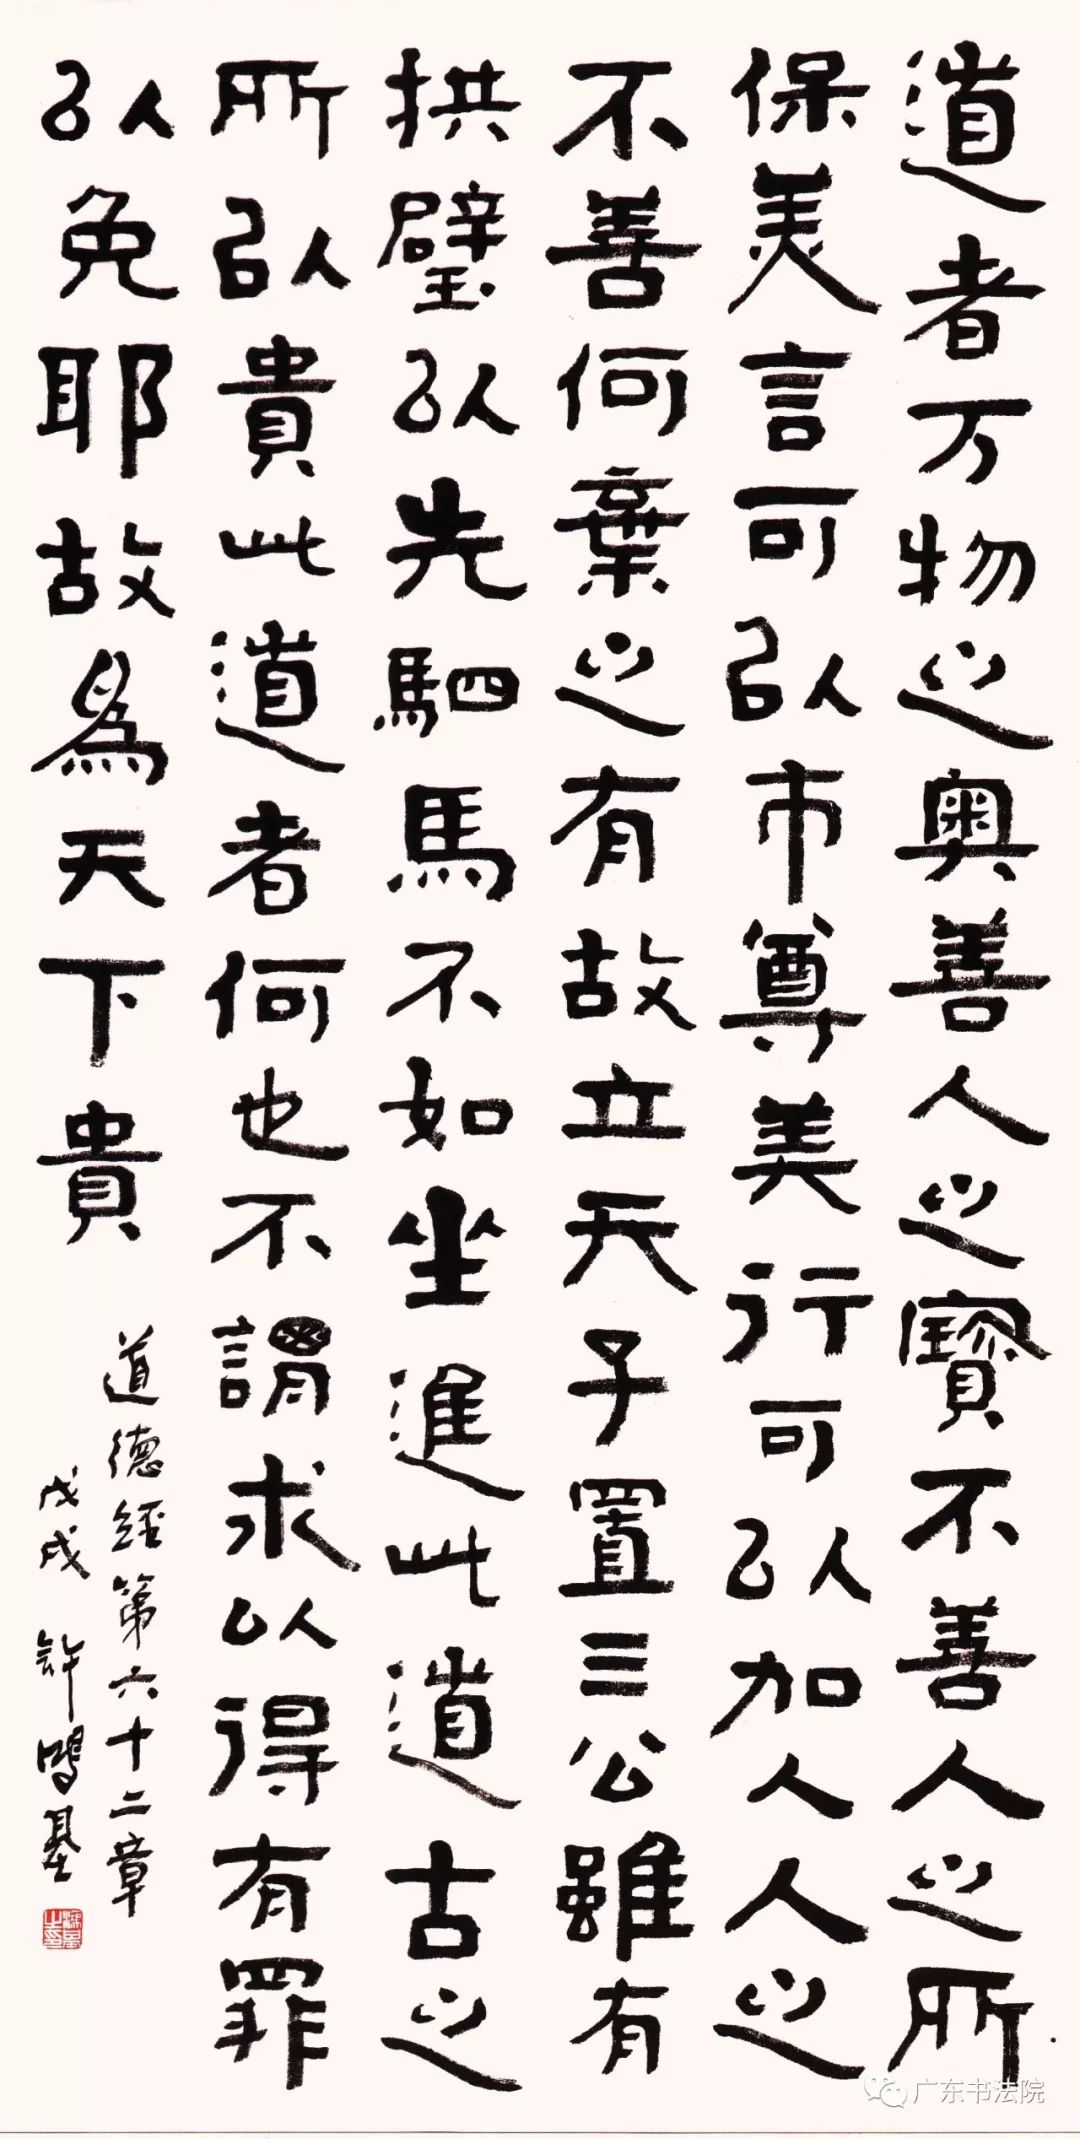 道者万物之奥善人之寶不善人之所
保美言可以市尊美行可以加人人之
不善何棄之有故立天子置三公雖有
拱璧以先駟馬不如坐進此道古之
所以貴此道者何也不謂求以得有罪
以免耶故爲天下貴
道德經第六十二章
戊戌 許鴻基
广东书法院